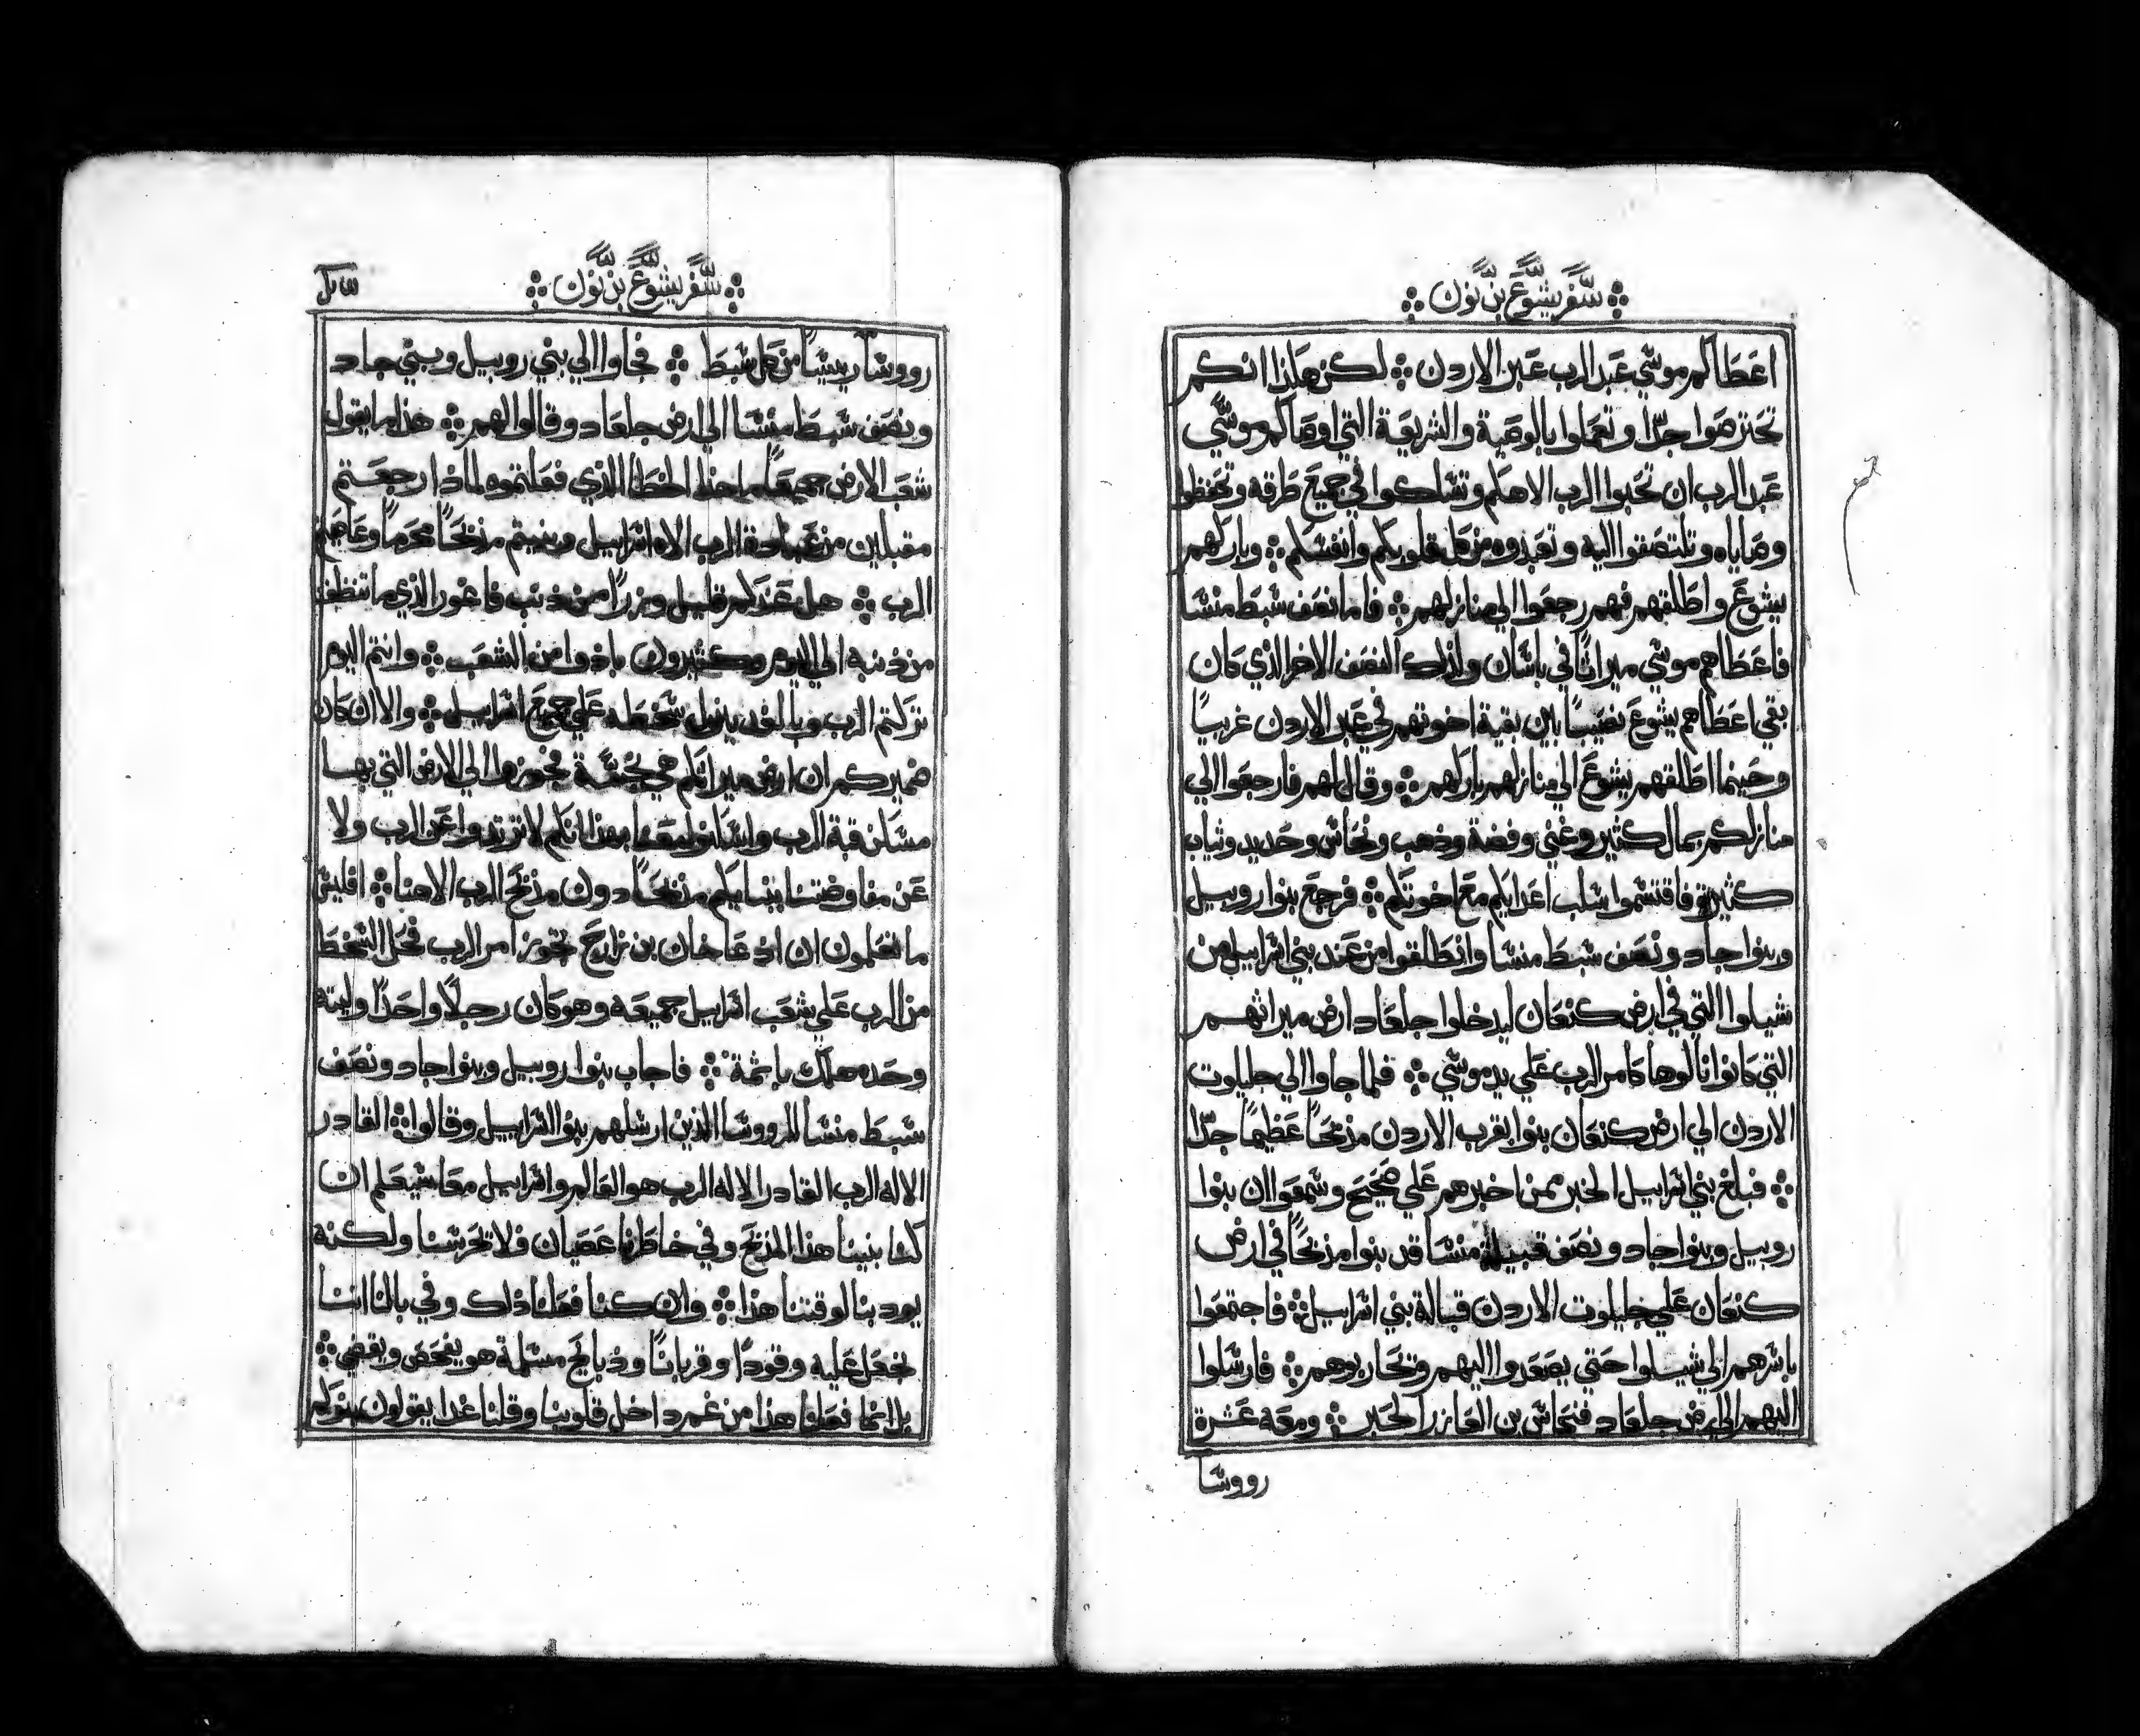 سفر يشوع بن نون
اعطاكم موسي عبد الرب عبر الاردن ܀ لكن هكذا انكم
تحترصوا جدّا وتعملوا بالوصية والشريعة التي اوصاكم موسي
عبد الرب ان تحبوا الرب الاهكم وتسلكوا في جميع طرقه وتحفظوا
وصاياه وتلتصقوا اليه وتعبدوه من كل قلوبكم وانفسكم ܀ وباركهم
يشوع واطلقهم فهم رجعوا الي منازلهم ܀ فاما نصف سبط منشا
فاعطاهم موسي ميراثا في باشان ولذلك النصف الاخر الذي كان
بقي اعطاهم يشوع نصيبا بين بقية اخوتهم في عبر الاردن غربيا
وحينما اطلقهم يشوع الي منازلهم باركهم ܀ وقال لهم فارجعوا الي
منازلكم بمال كثير وغني وفضة وذهب ونحاس وحديد وثياب
كثيرة فاقتسموا سلب اعدايكم مع اخوتكم ܀ فرجع بنوا روبيل
وبنوا جاد ونصف سبط منشا وانطلقوا من عند بني اسراييل من
شيلوا التي في ارض كنعان ليدخلوا جلعاد ارض ميراثهم
التي كانوا نالوها كامر الرب علي يد موسي ܀ فلما جاوا الي جليلوت
الاردن الي ارض كنعان بنوا بقرب الاردن مذبحا عظيما جدّا
܀ فبلغ بني اسراييل الخبر ممن اخبرهم علي صحيح وسمعوا ان بنوا
روبيل وبنوا جاد ونصف قبيلة منشا قد بنوا مذبحا في ارض
كنعان علي جليلوت الاردن قبالة بني اسراييل ܀ فاجتمعوا
باسرهم الي شيلوا حتي يصعدوا اليهم وتحاربوهم ܀ فارسلوا
اليهم الي ارض جلعاد فنحاس بن العازر الحبر ܀ ومعه عشرة
رووسا
سفر يشوع بن نون
رووسا رييسا من كل سبط ܀ فجاوا الي بني روبيل وبني جاد
ونصف سبط منشا الي ارض جلعاد وقالوا لهم ܀ هذا ما يقول
شعب الارض جميعا ما هذا الخطا الذي فعلتموه لماذا رجعتم
مقبلين من عبادة الرب الاه اسراييل وبنيتم مذبحا محرما وعاصيتم
الرب ܀ هل عندكم قليل ونزرا من ذنب فاغور الذي ما تنظف
من ذنبه الي اليوم وكثيرون بادوا من الشعب ܀ وانتم اليوم
تركتم الرب وبالغد ينزل سخطه علي جميع اسراييل ܀ والا ان كان
ضميركم ان ارض ميراثكم هي نجسة فجوزوا الي الارض التي بها
مسكن قبة الرب واسكنوا بهذا انكم لا ترتدوا عن الرب ولا
عن مفاوضتنا ببنايكم مذبحا دون مذبح الرب الاهنا ܀ افليس
ما تعلمون ان اذ عاخان بن زارح تجوز امر الرب فحل السخط
من الرب علي شعب اسراييل جميعه وهو كان رجلا واحدا وليته
وحده هلك باثمة ܀ فاجاب بنوا روبيل وبنوا جاد ونصف
سبط منشا للرووسا الذين ارسلهم بنوا اسراييل وقالوا ܀ القادر
الاله الرب القادر الاله الرب هو العالم واسراييل معا سيعلم ان
كنا بنينا هذا المذبح وفي خاطرنا عصيان فلا تحرسنا ولكنه
يود بنا لوقتنا هذا ܀ وان كنا فعلنا ذلك وفي بالنا اننا
نجعل عليه وقودا وقربانا وذبايح مسلمة هو يفحص ويقضي ܀
بل انما فعلنا هذا من غمر داخل قلوبنا وقلنا غدا يقولون بنوكم